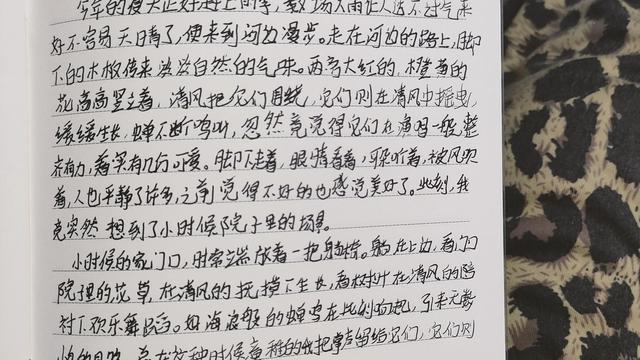 今年的夏天正好赶上雨季,数场大雨让人透不过气来
好不容易天晴了,便来到河边漫步。走在河边的路上,脚
下的木板传来淡淡自然的气味。两旁大红的,橙黄的
花高高竖立着,清风把它们围绕,它们则在清风中摇曳,
缓缓生长,蝉不断鸣叫,忽然竟觉得它们在演唱一般,整
齐有力,着实有几分可爱。脚下走着,眼睛看着,耳朵听着,被风吹
着,人也平静了许多,之前觉得不好的也感觉美好了。此刻,我
竟突然想到了小时候院子里的场景。
小时候的家门口,时常端放着一把躺椅。躺在上边,看门
院里的花草,在清风的抚摸下生长,看树叶在清风的陪
衬下欢乐舞蹈。如海浪般的蝉鸣在此刻响起,引来无数
的目光,总在这种时候童稚的我把掌声留给它们,它们则